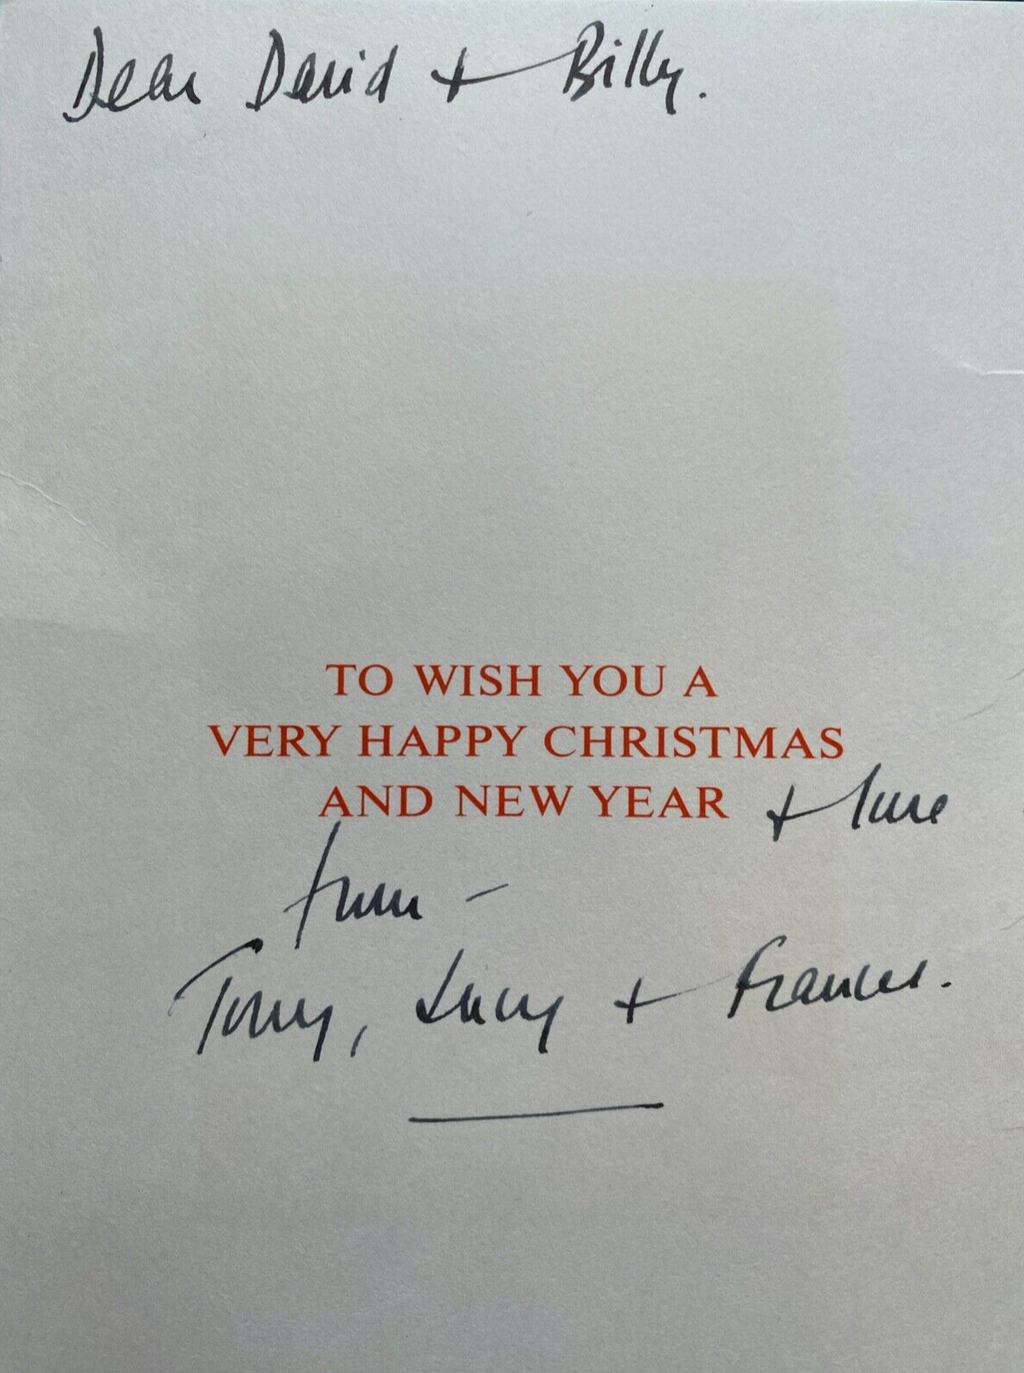 Dear David + Billy.
TO WISH YOU A
VERY HAPPY CHRISTMAS
AND NEW YEAR + love
from -
Tony, Lucy + Frances.